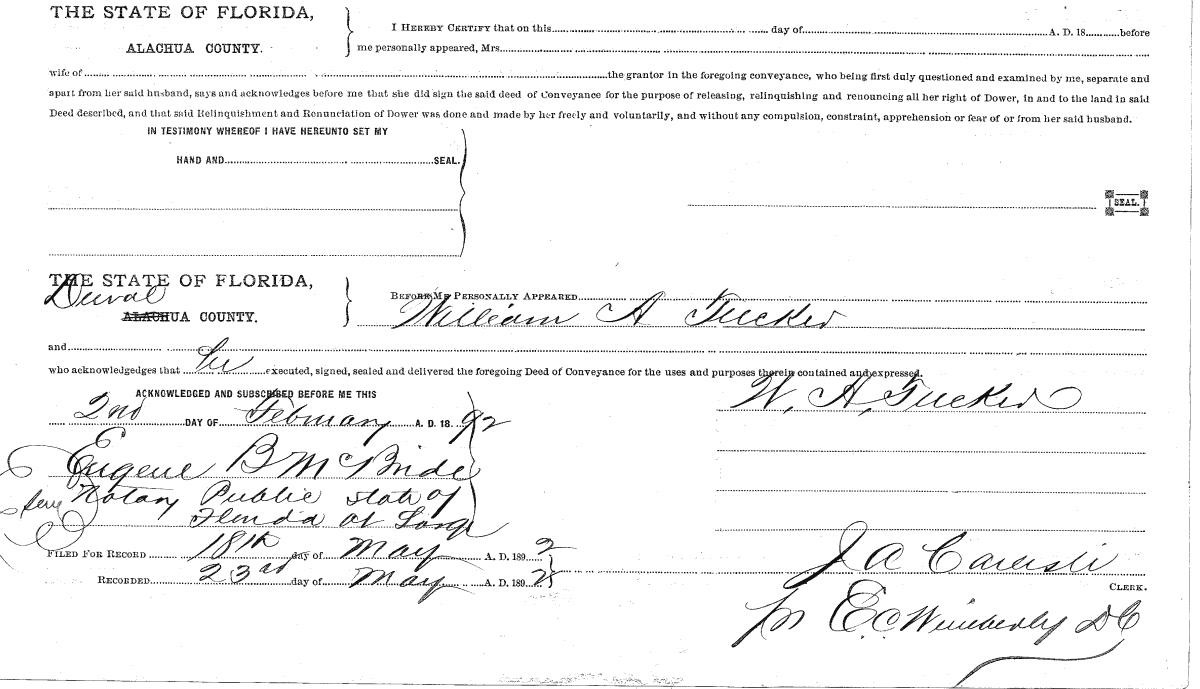 THE STATE OF FLORIDA,
ALACHUA COUNTY.
I HEREBY CERTIFY that on this day of A. D. 18 before
me personally appeared, Mrs.
wife of the grantor in the foregoing conveyance, who being first duly questioned and examined by me, separate and
apart from her said husband, says and acknowledges before me that she did sign the said deed of Conveyance for the purpose of releasing, relinquishing and renouncing all her right of Dower, in and to the land in said
Deed described, and that said Relinquishment and Renunciation of Dower was done and made by her freely and voluntarily, and without any compulsion, constraint, apprehension or fear of or from her said husband.
IN TESTIMONY WHEREOF I HAVE HEREUNTO SET MY
HAND AND SEAL.
SEAL.
THE STATE OF FLORIDA,
Duval
ALACHUA COUNTY.
BEFORE ME PERSONALLY APPEARED
William A Tucker
and
who acknowledgedges that he executed, signed, sealed and delivered the foregoing Deed of Conveyance for the uses and purposes therein contained and expressed.
W. A. Tucker
ACKNOWLEDGED AND SUBSCRIBED BEFORE ME THIS
2nd DAY OF February A. D. 18 92
Eugene B McBride
Notary Public state of
Florida at Large
FILED FOR RECORD 18th day of May A. D. 189 2
RECORDED 23rd day of May A. D. 189 2
J A Carlisle
CLERK.
pr E. C. Wimberly D C